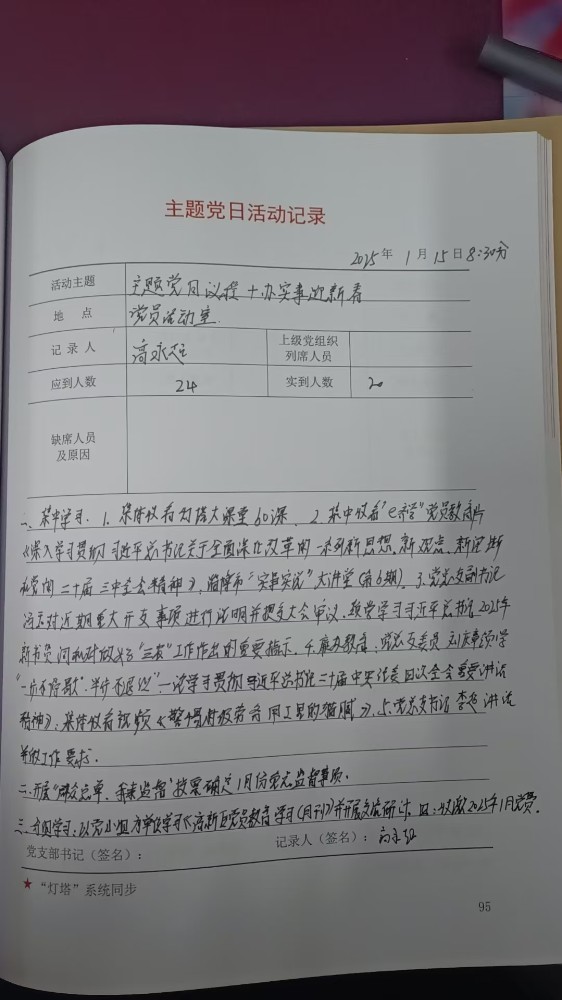 主题党日活动记录
2025年 1月 15日 8:30分
活动主题 主题党日议程+办实事迎新春
地 点 党员活动室
记 录 人 高永 上级党组织列席人员
应到人数 24 实到人数 20
缺席人员及原因
一、集中学习. 1. 集体收看灯塔大课堂60课. 2. 集中收看"e支部"党员教育片
《深入学习贯彻习近平总书记关于全面深化改革的一系列新思想、新观点、新论断
和党的二十届三中全会精神》, 淄博市"实事实说"大讲堂(第6期). 3. 党总支副书记
对近期重大开支事项进行说明并提交大会审议, 学习习近平总书记2025年
新书 对 "三农"工作作出的重要指示. 4. 廉办教育: 党总支委员 领学
"一步不停歇、半步不退让"一论学习贯彻习近平总书记二十届中央纪委四次全会重要讲话
精神》; 集体收看视频《警惕 》. 5. 党总支书记 讲话
并做工作要求.
二. 开展"群众点单、我来监督"投票确定1月份党员监督事项.
三. 分组学习: 以党小组为单位学习《高新区党员教育学习(月刊)》并开展交流研讨. 四: 收缴2025年1月党费.
党支部书记(签名): 记录人(签名): 高永
★ "灯塔"系统同步
95